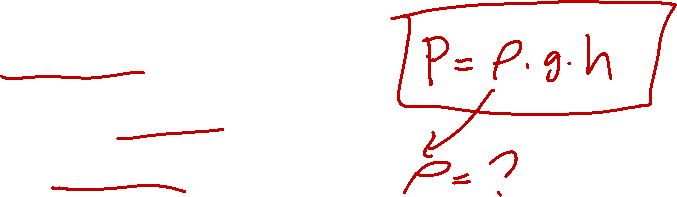 P = ρ.g.h
ρ = ?